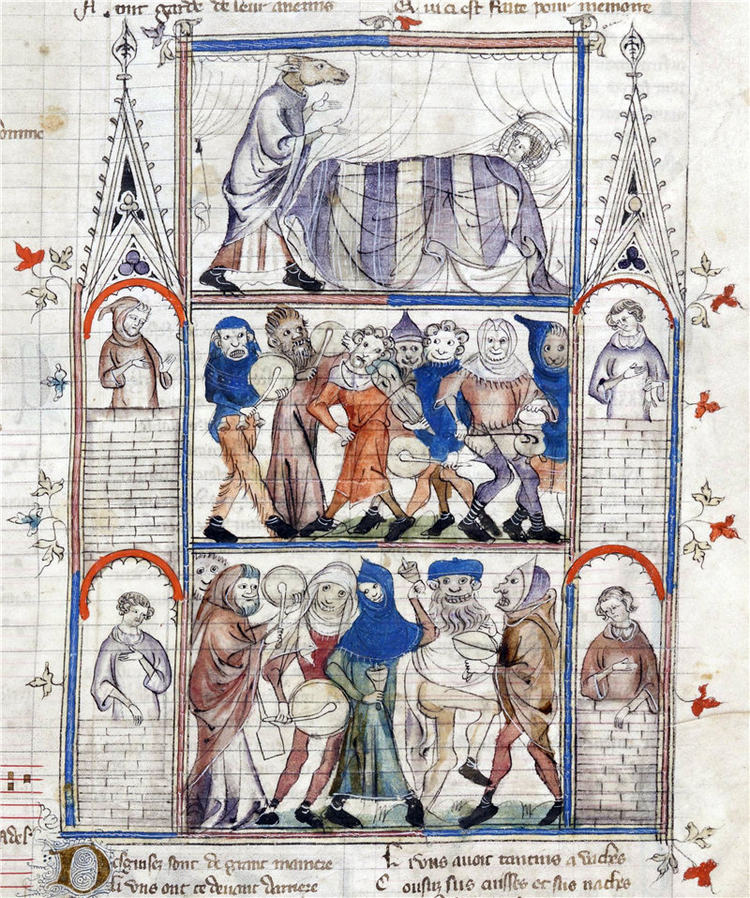 ont garde de leur anemis
Qui ci est faite pour memoire
Desguisez sont de grant maniere
Li uns ont ce deuant darriere
Li uns auoit tantins a vaches
Cousuz sus cuisses et sus naches